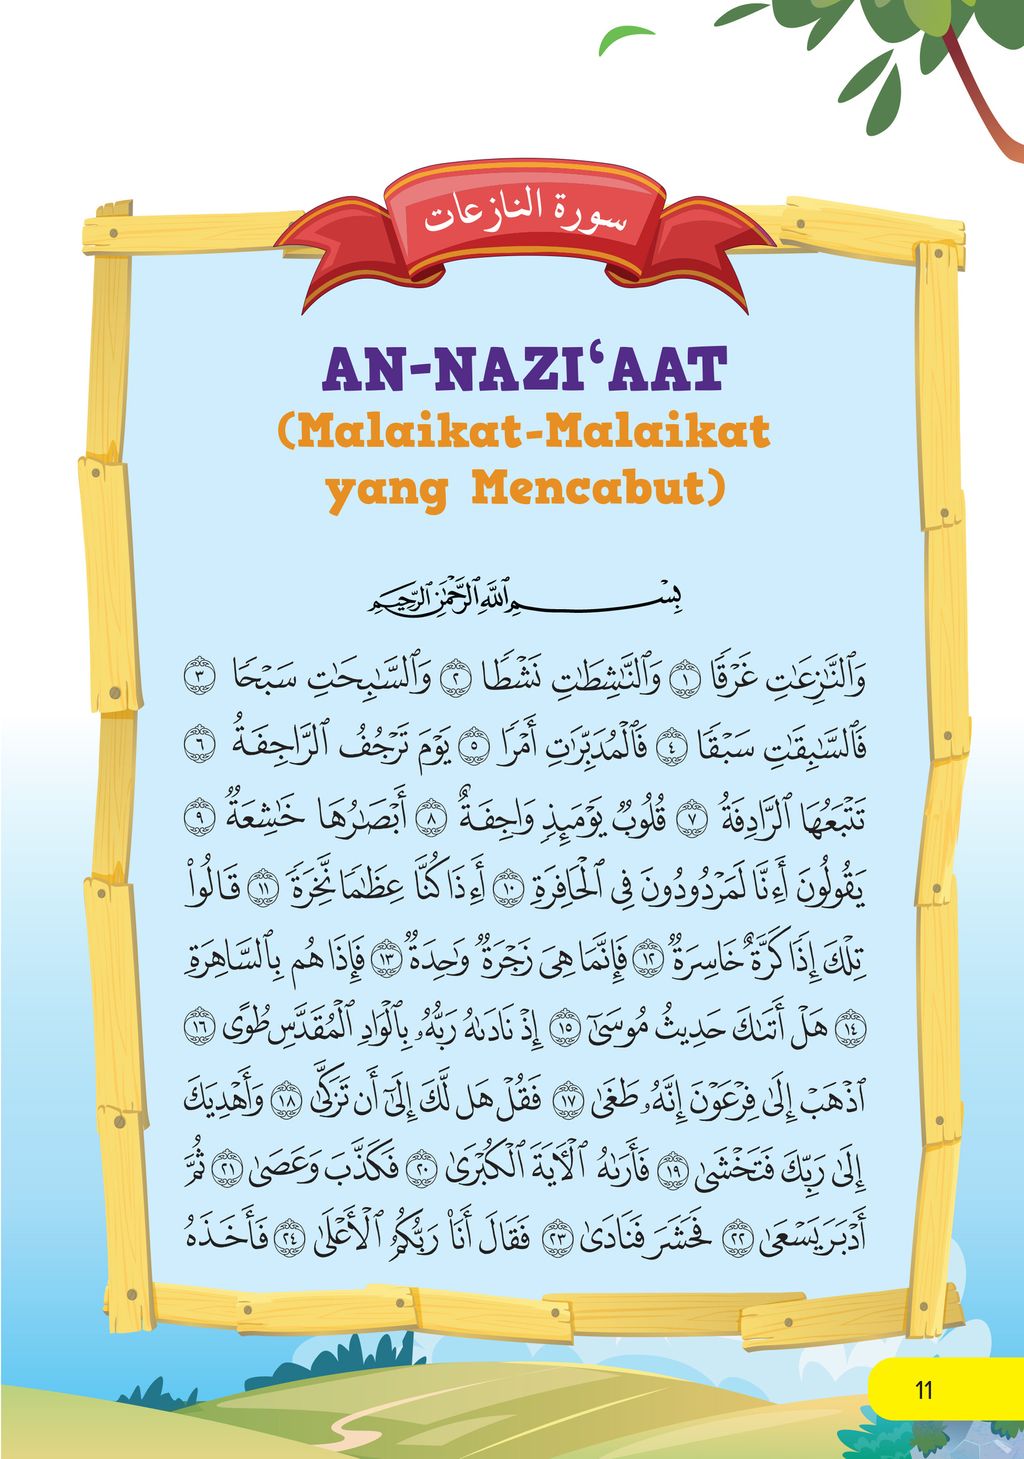 سورة النازعات
AN-NAZI‘AAT
(Malaikat-Malaikat
yang Mencabut)
بِسْمِ ٱللَّهِ ٱلرَّحْمَٰنِ ٱلرَّحِيمِ
وَٱلنَّٰزِعَٰتِ غَرْقًا ١ وَٱلنَّٰشِطَٰتِ نَشْطًا ٢ وَٱلسَّٰبِحَٰتِ سَبْحًا ٣
فَٱلسَّٰبِقَٰتِ سَبْقًا ٤ فَٱلْمُدَبِّرَٰتِ أَمْرًا ٥ يَوْمَ تَرْجُفُ ٱلرَّاجِفَةُ ٦
تَتْبَعُهَا ٱلرَّادِفَةُ ٧ قُلُوبٌ يَوْمَئِذٍ وَاجِفَةٌ ٨ أَبْصَٰرُهَا خَٰشِعَةٌ ٩
يَقُولُونَ أَءِنَّا لَمَرْدُودُونَ فِى ٱلْحَافِرَةِ ١٠ أَءِذَا كُنَّا عِظَٰمًا نَّخِرَةً ١١ قَالُوا۟
تِلْكَ إِذًا كَرَّةٌ خَاسِرَةٌ ١٢ فَإِنَّمَا هِىَ زَجْرَةٌ وَٰحِدَةٌ ١٣ فَإِذَا هُم بِٱلسَّاهِرَةِ
١٤ هَلْ أَتَىٰكَ حَدِيثُ مُوسَىٰٓ ١٥ إِذْ نَادَىٰهُ رَبُّهُۥ بِٱلْوَادِ ٱلْمُقَدَّسِ طُوًى ١٦
ٱذْهَبْ إِلَىٰ فِرْعَوْنَ إِنَّهُۥ طَغَىٰ ١٧ فَقُلْ هَل لَّكَ إِلَىٰٓ أَن تَزَكَّىٰ ١٨ وَأَهْدِيَكَ
إِلَىٰ رَبِّكَ فَتَخْشَىٰ ١٩ فَأَرَىٰهُ ٱلْءَايَةَ ٱلْكُبْرَىٰ ٢٠ فَكَذَّبَ وَعَصَىٰ ٢١ ثُمَّ
أَدْبَرَ يَسْعَىٰ ٢٢ فَحَشَرَ فَنَادَىٰ ٢٣ فَقَالَ أَنَا۠ رَبُّكُمُ ٱلْأَعْلَىٰ ٢٤ فَأَخَذَهُ
11